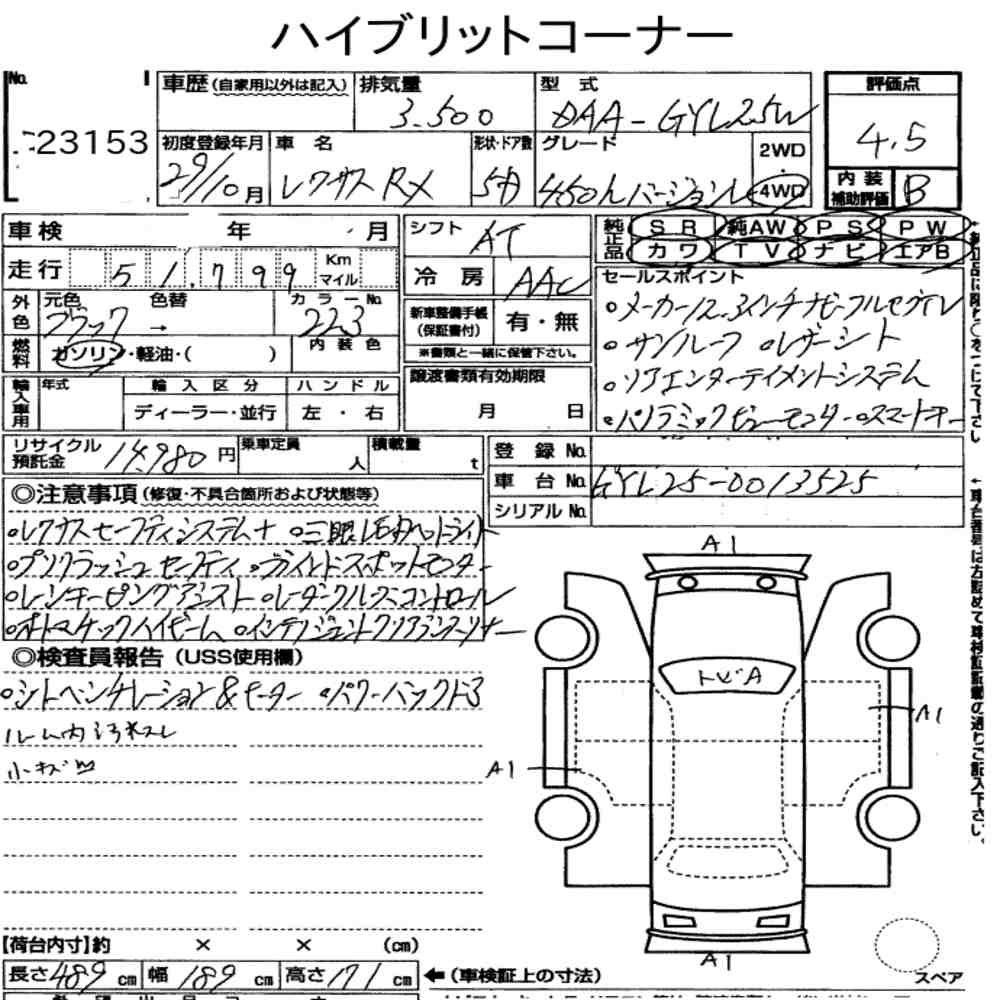 ハイブリットコーナー
No. 23153
車歴 (自家用以外は記入)
排気量 3.500
型式 DAA-GYL25W
評価点 4.5
初度登録年月 29/10月
車名 レクサス RX
形状・ドア数 5D
グレード 450h バージョンL
2WD
4WD
内装補助評価 B
車検 年 月
シフト AT
純正品 SR 純AW PS PW
カワ TV ナビ エアB
走行 51,799 Km マイル
冷房 AAC
セールスポイント
外色 元色 ブラック → 色替 カラーNo. 223
新車整備手帳(保証書付) 有・無
※書類と一緒に保管下さい。
○メーカー12.3インチナビフルセグTV
○サンルーフ ○レザーシート
○リアエンターテイメントシステム
○パノラミックビューモニター ○スマートキー
燃料 ガソリン・軽油・( ) 内装色
輸入車用 年式 輸入区分 ハンドル
ディーラー・並行 左・右
譲渡書類有効期限
月 日
リサイクル預託金 14,980円
乗車定員 人
積載量 t
登録No.
車台No. GYL25-0013525
シリアルNo.
◎注意事項 (修復・不具合箇所および状態等)
○レクサスセーフティシステム+ ○三眼LEDヘッドライト
○プリクラッシュセーフティ ○ブラインドスポットモニター
○レーンキーピングアシスト ○レーダークルーズコントロール
○オートマチックハイビーム ○インテリジェントクリアランスソナー
◎検査員報告 (USS使用欄)
○シートベンチレーション&ヒーター ○パワーバックドア
ルーム内汚れスレ
小キズ凹
A1
トビA
A1
A1
A1
【荷台内寸】約 × × (cm)
長さ 489 cm 幅 189 cm 高さ 171 cm
←(車検証上の寸法)
スペア